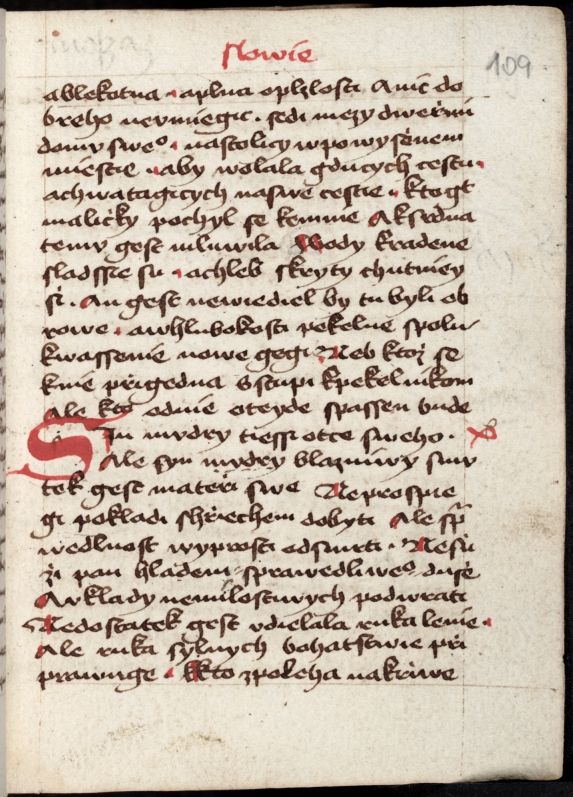 slowie
109
ablekotna · aplna oplzlosti A nic do
breho neymiegic · sedi mezy dwermi
domu sweo · nastolicy wpowysenem
miestie · aby wolala gducych cestu ·
achwatagicych naswe cestie · ktogt
malicky pochyl se kemnie A ksrdna
temu gest mluwila Wody kradene
sladssie su · achleb skryty chutniey
si · An gest newiediel by tu byli ob
rowe · awhlubokosti pekelne spolu
kwassenie nowe gegi Neb ktoz se
knie prigedna sstupi kpekelnikom
Ale kto odnie oteyde spassen bude
Syn mudry tiessi otce sweho · x
Ale syn mudry blazniwy smu
tek gest materi swe Neprospie
gi pokladi shriechem dobyti Ale sp
wedlnost wyprosti odsmrti · Nesu
zi pan hladem sprawedliweo duse
A vklady nemilostiwych podwrati
Nedostatek gest vdielala ruka lenie ·
Ale ruka sylnych bohatstwie pri
prawuge · Kto zpoleha nakriwe